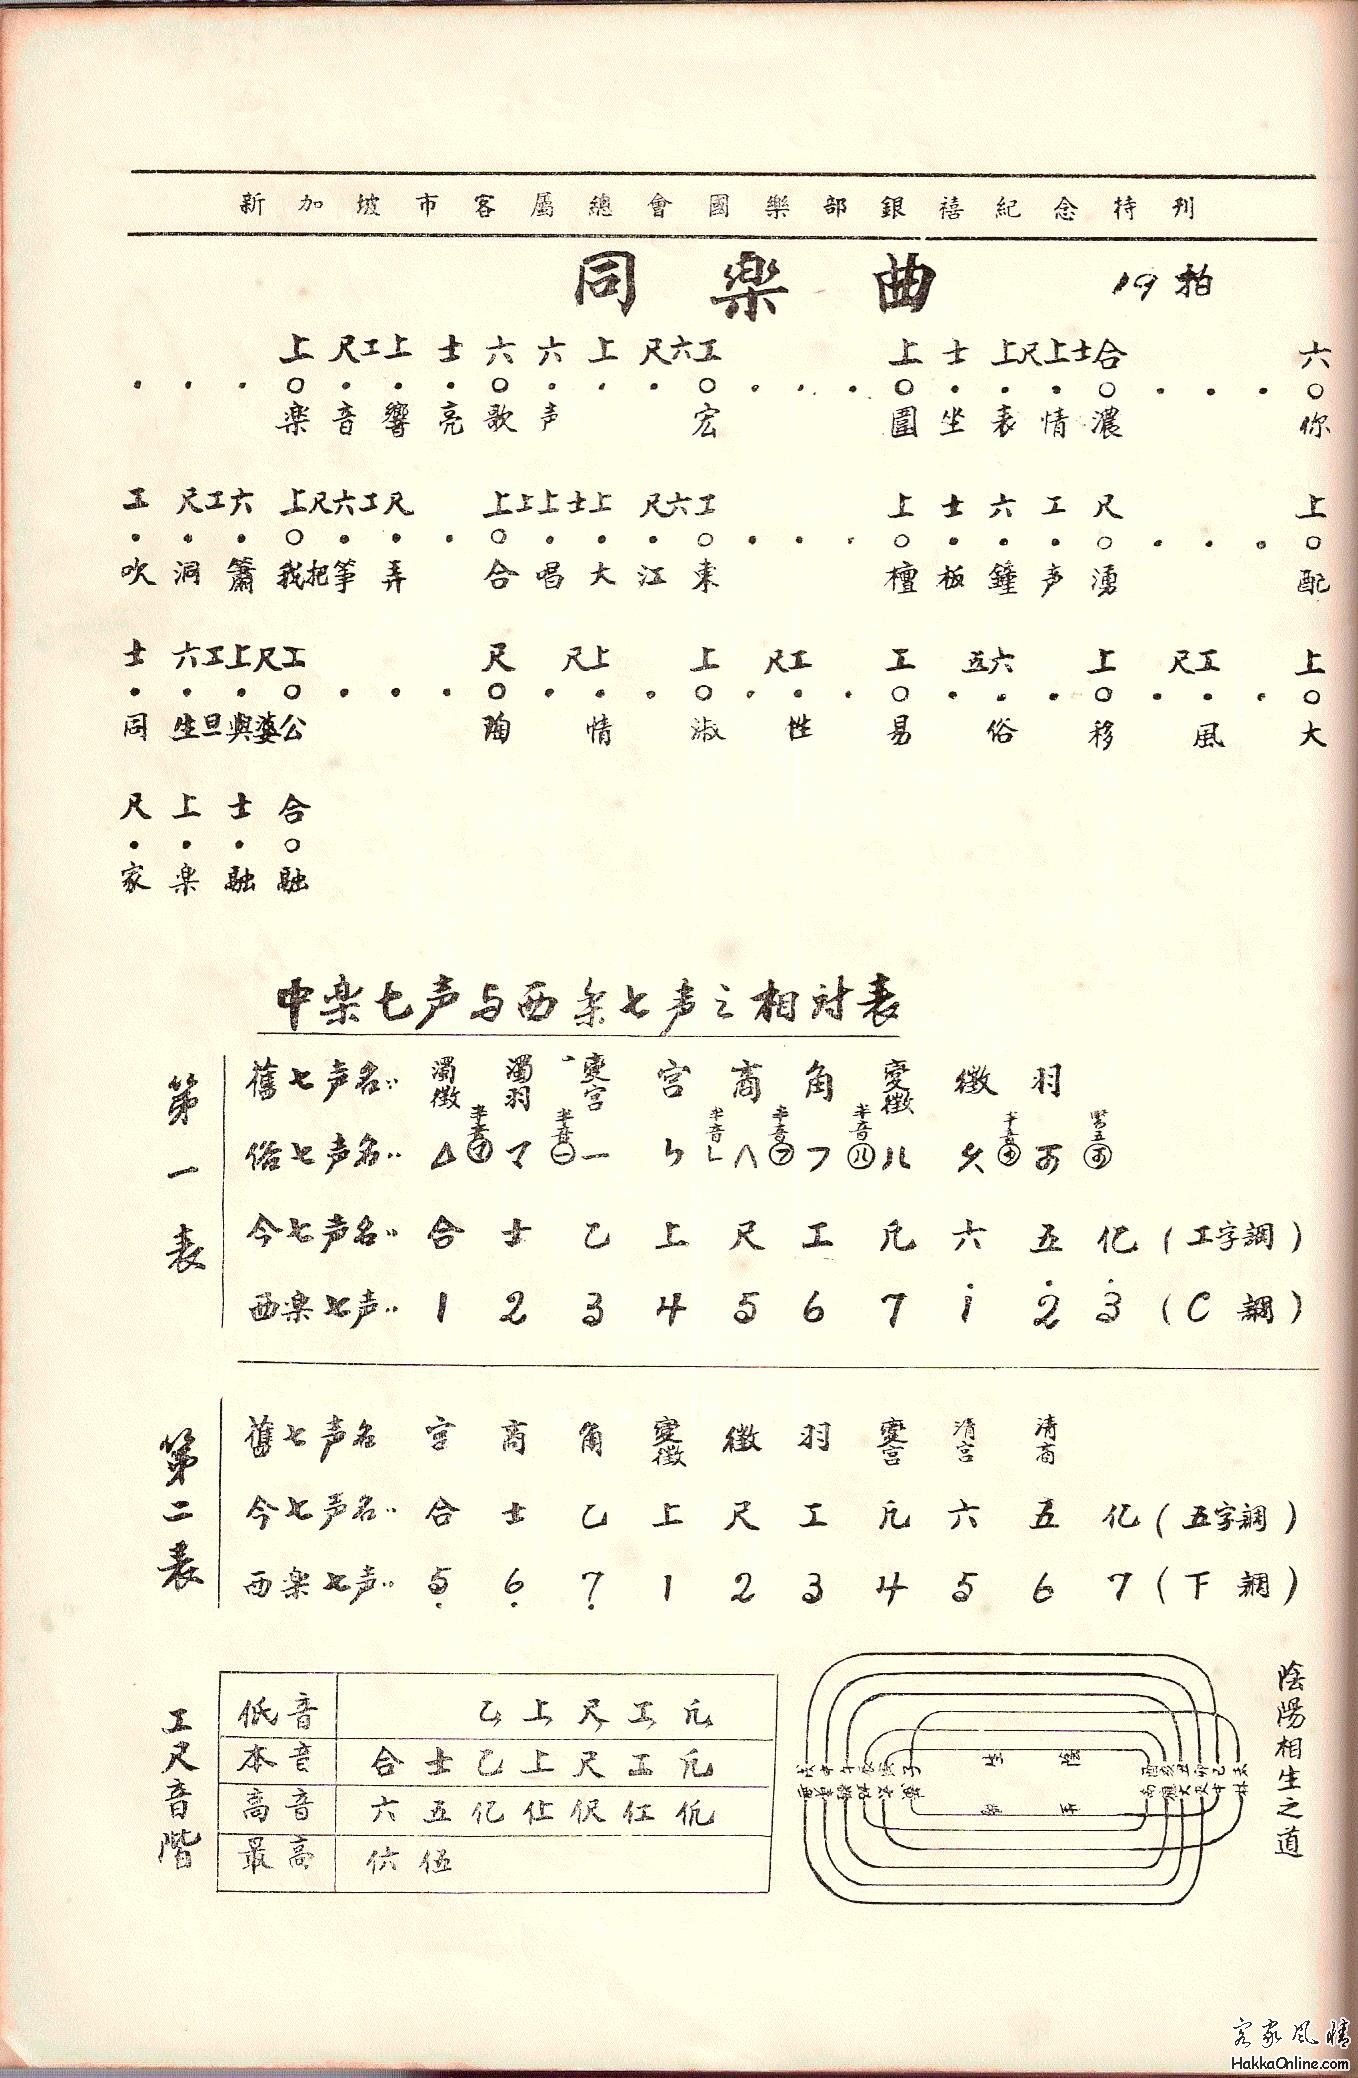 新加坡市客屬總會國樂部銀禧紀念特刊
同樂曲 19拍
上 尺工上 士 六 六 上 尺六工 上 士 上尺上士合 六
樂 音 響 亮 歌 声 宏 圍 坐 表 情 濃 你
工 尺工六 上尺六工尺 上上上士上 尺六工 上 士 六 工 尺 上
吹 洞 簫 我把箏 弄 合 唱 大 江 東 檀 板 鐘 声 湧 配
士 六工上尺工 尺 尺上 上 尺工 工 五六 上 尺工 上
同 生旦與婆公 陶 情 淑 性 易 俗 移 風 大
尺 上 士 合
家 樂 融 融
中楽七声与西楽七声之相対表
第一表
舊七声名 濁徵 濁羽 變宮 宮 商 角 變徵 徵 羽
半音 半音 半音 半音 半音 半音
俗七声名
今七声名 合 士 乙 上 尺 工 凡 六 五 亿 (工字調)
西楽七声 1 2 3 4 5 6 7 1̇ 2̇ 3̇ (C 調)
第二表
舊七声名 宮 商 角 變徵 徵 羽 變宮 清宮 清商
今七声名 合 士 乙 上 尺 工 凡 六 五 亿 (五字調)
西楽七声 5̣ 6̣ 7̣ 1 2 3 4 5 6 7 (下 調)
工尺音階
低音 乙 上 尺 工 凡
本音 合 士 乙 上 尺 工 凡
高音 六 五 亿 仩 伬 仜 㐳
最高 伍
陰陽相生之道
客家風情
HakkaOnline.com